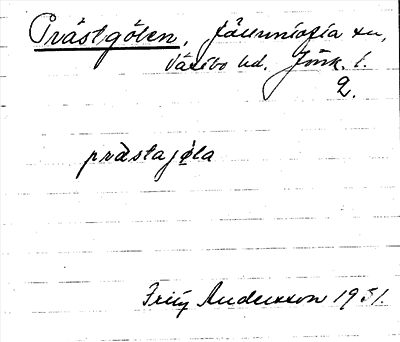 Prästgölen, Jälluntofta sn,
Västbo hd. Jönk. l.
2.
prästajöla
Fritz Andersson 1931.